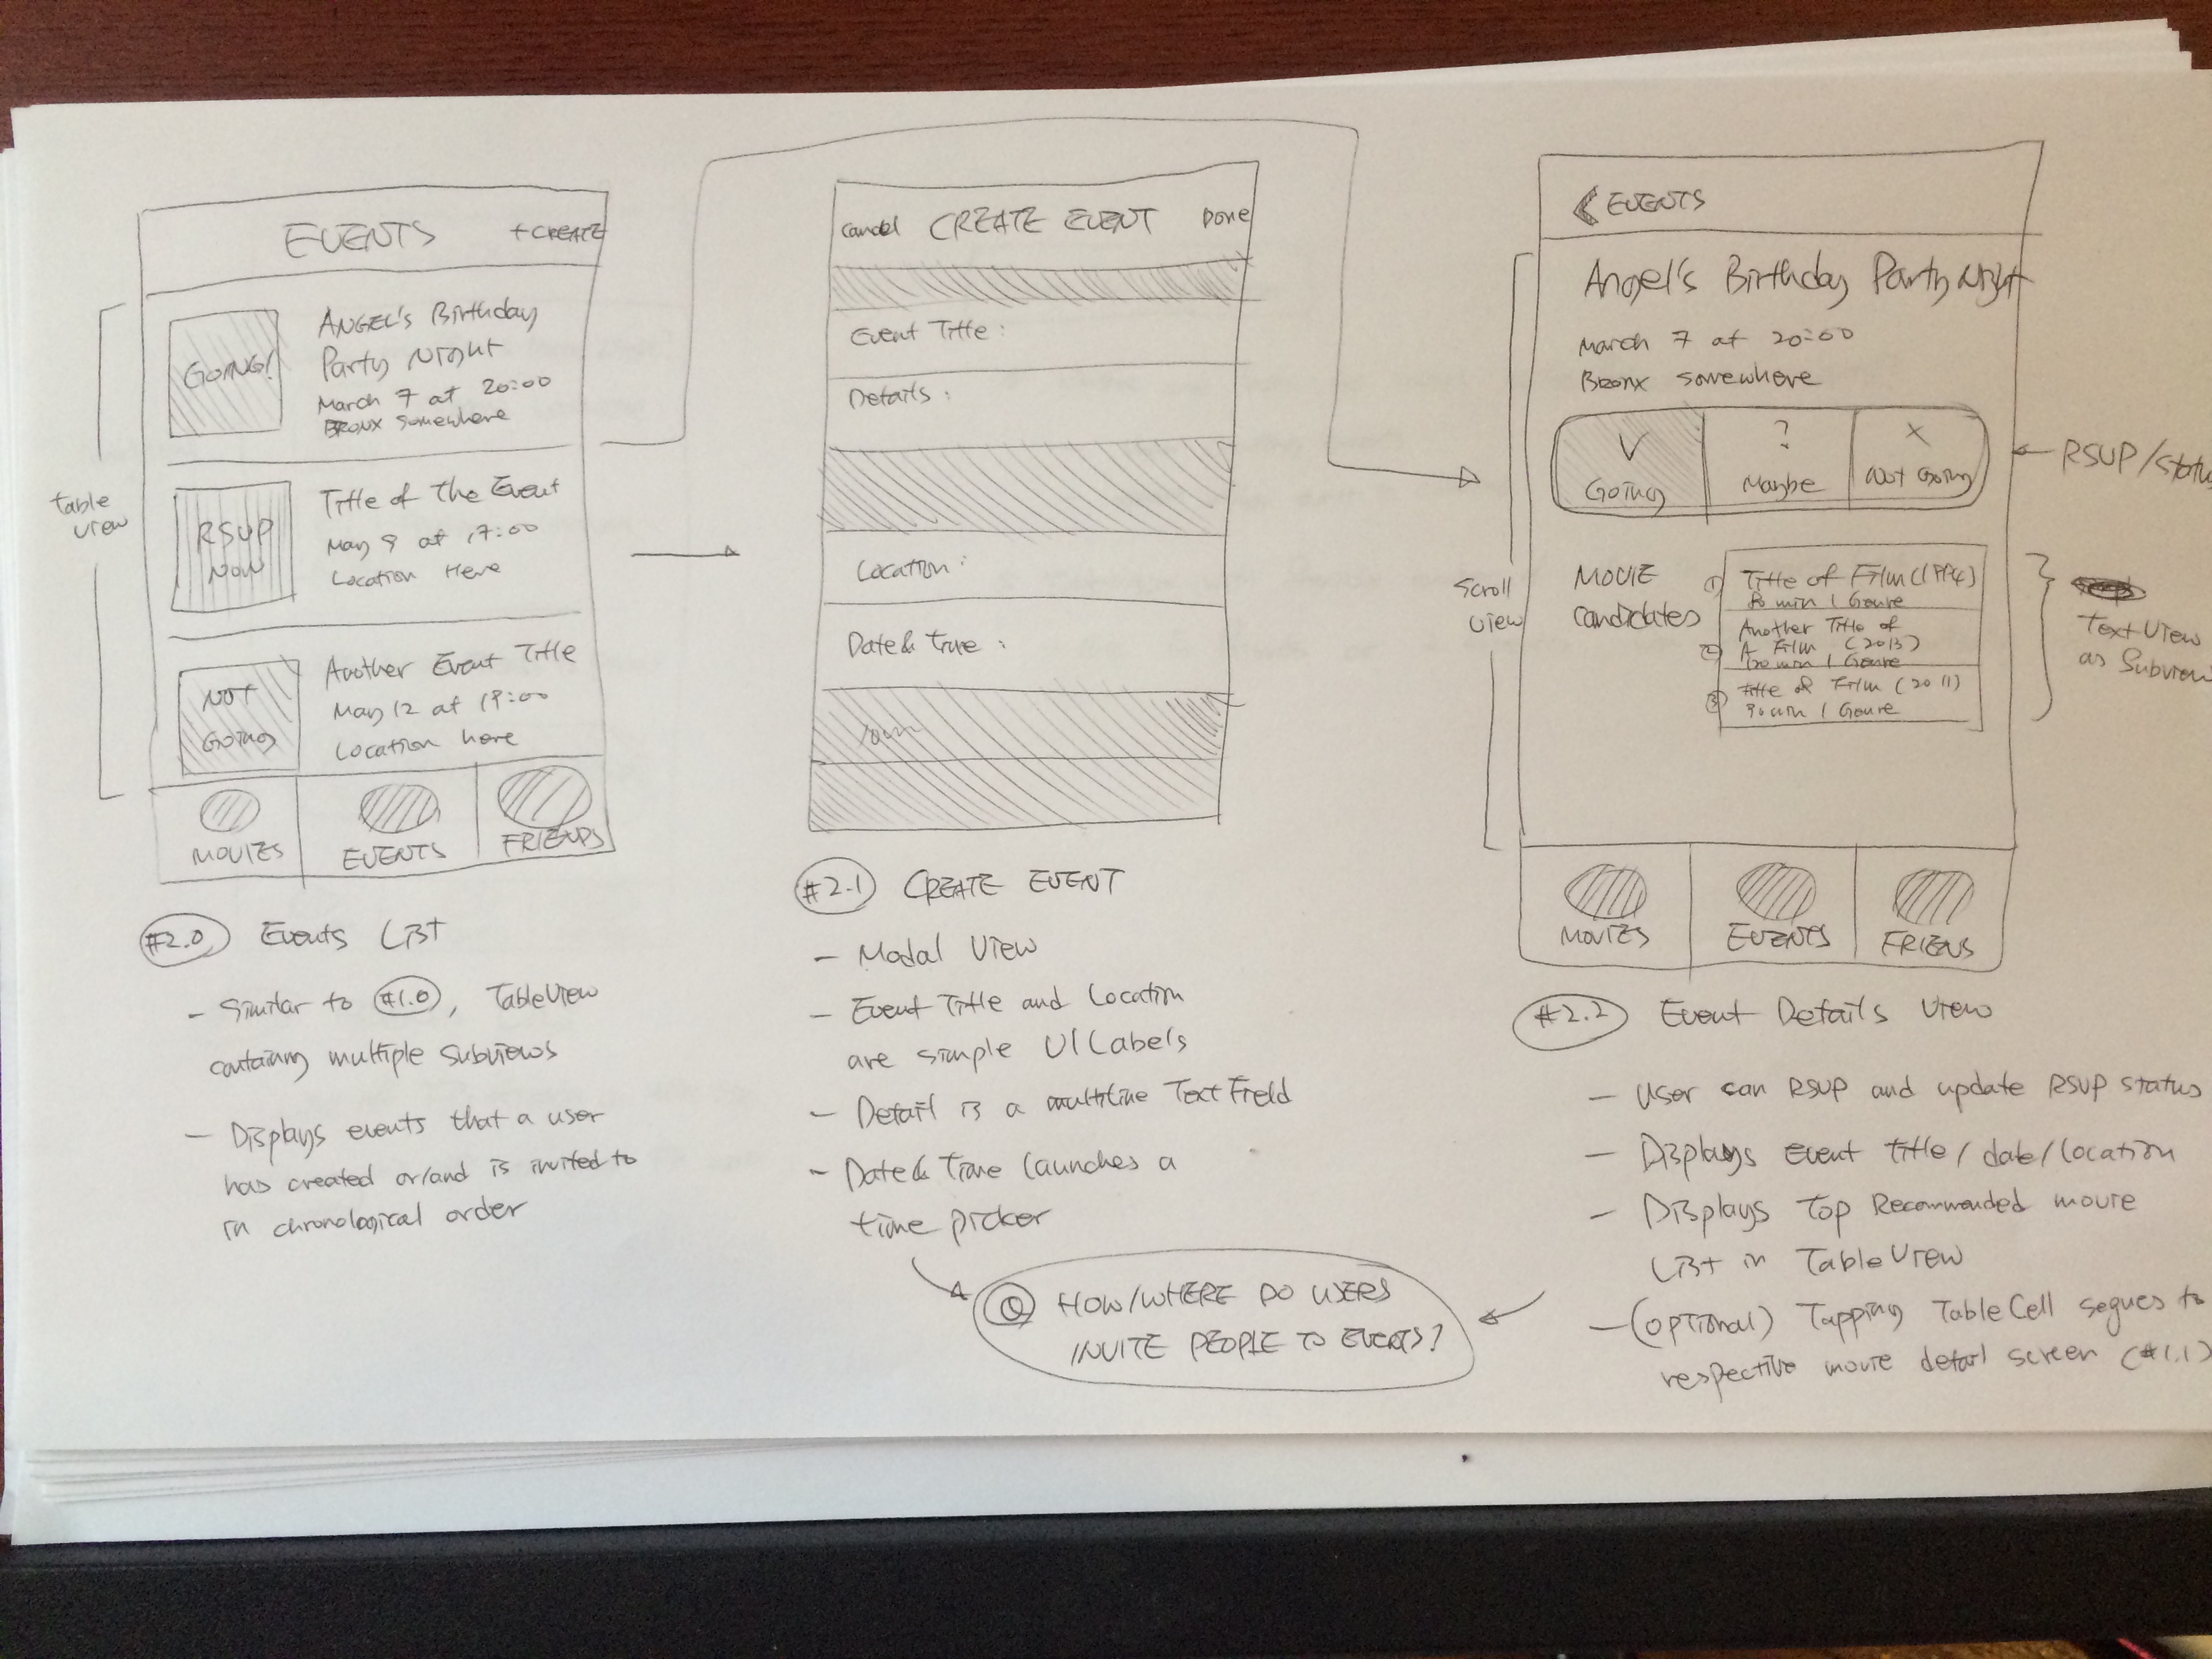 EVENTS +CREATE
GOING!
ANGEL'S Birthday
Party Night
March 7 at 20:00
BRONX Somewhere
Table
View
RSVP
NOW
Title of The Event
May 9 at 17:00
Location Here
NOT
GOING
Another Event Title
May 12 at 19:00
Location here
MOVIES EVENTS FRIENDS
#2.0 Events List
- Similar to #1.0, TableView
containing multiple subviews
- Displays events that a user
has created or/and is invited to
in chronological order
Cancel CREATE EVENT Done
Event Title :
Details :
Location :
Date & Time :
#2.1 CREATE EVENT
- Modal View
- Event Title and Location
are simple UILabels
- Detail is a multiline TextField
- Date & Time launches a
time picker
Q HOW/WHERE DO USERS
INVITE PEOPLE TO EVENTS?
EVENTS
Angel's Birthday Party Night
March 7 at 20:00
Bronx Somewhere
V ? X
Going Maybe Not Going
RSVP/status
Scroll
View
MOVIE
candidates
1 Title of Film (1994)
80 min | Genre
Another Title of
2 A Film (2013)
120 min | Genre
3 Title of Film (2011)
90 min | Genre
Text View
as Subview
MOVIES EVENTS FRIENS
#2.2 Event Details View
- User can RSVP and update RSVP status
- Displays Event title/date/location
- Displays Top Recommended movie
List in TableView
- (optional) Tapping TableCell segues to
respective movie detail screen (#1.1)